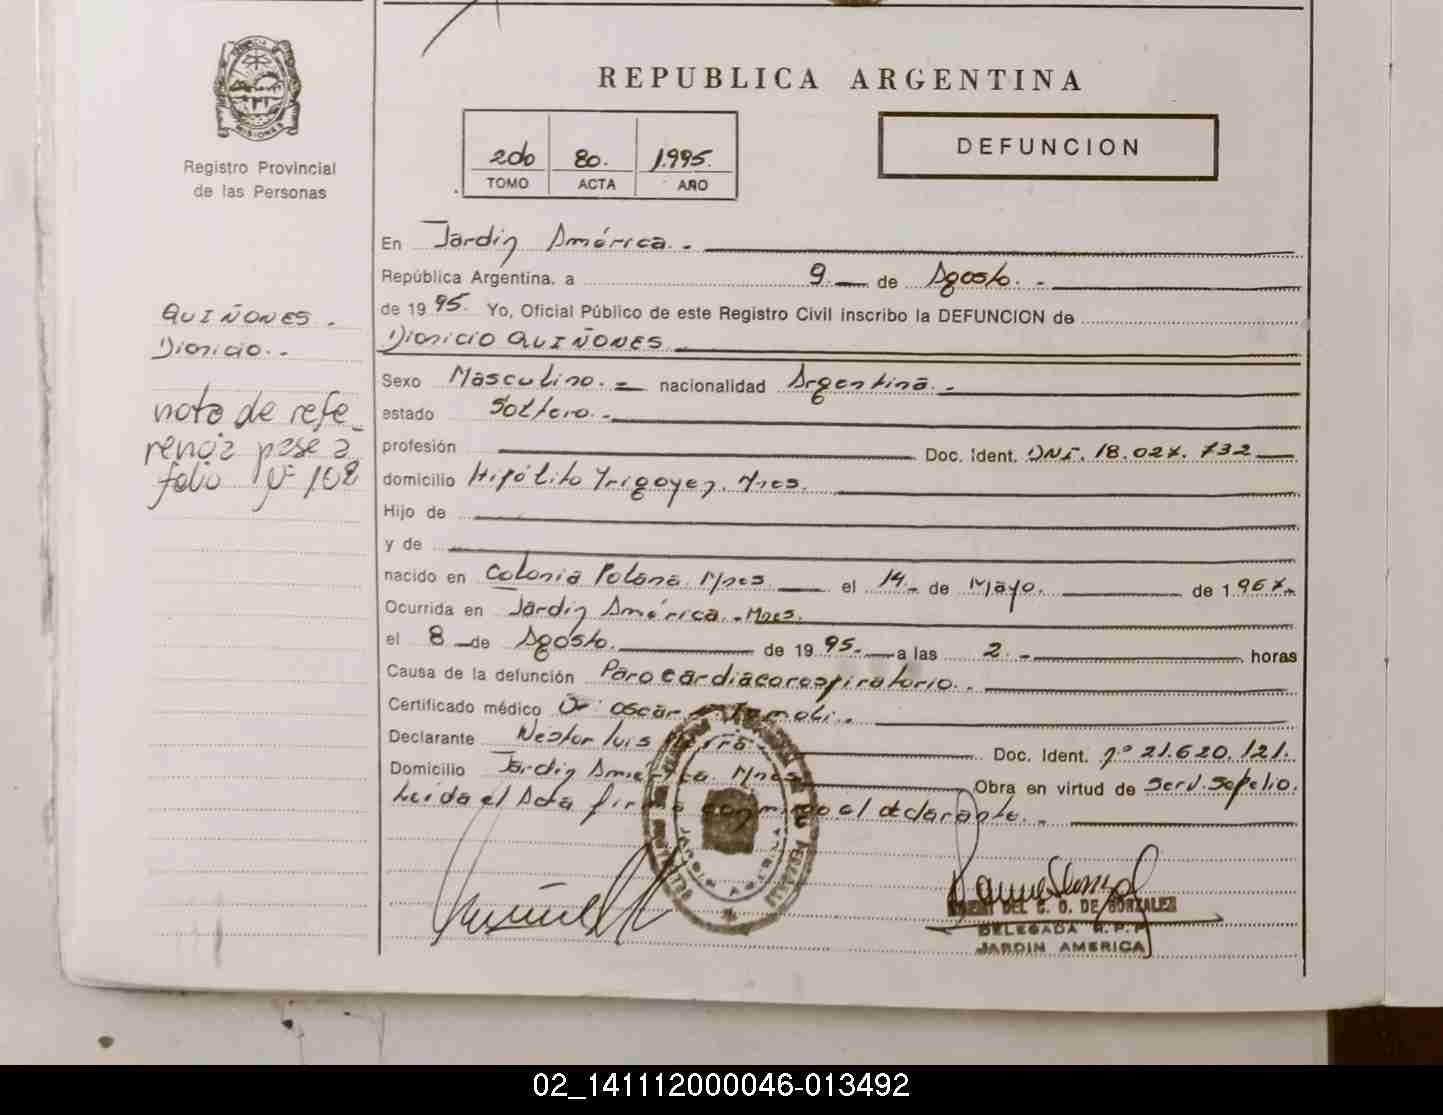 REPUBLICA ARGENTINA
MISIONES
Registro Provincial
de las Personas
2do 80. 1.995.
TOMO ACTA AÑO
DEFUNCION
En Jardín América.-
República Argentina, a 9 de Agosto.-
de 1995. Yo, Oficial Público de este Registro Civil inscribo la DEFUNCION de
Dionicio QUIÑONES
QUIÑONES.
Dionicio.-
nota de refe_
rencia pase a
folio Nº 108
Sexo Masculino.= nacionalidad Argentina.-
estado Soltero.-
profesión Doc. Ident. DNI. 18.027.732
domicilio Hipólito Yrigoyen. Mnes.
Hijo de
y de
nacido en Colonia Polana. Mnes. el 14 de Mayo. de 1.967.
Ocurrida en Jardín América.-Mnes.
el 8 de Agosto. de 1995. a las 2.- horas
Causa de la defunción Paro cardiacorespiratorio.
Certificado médico Dr. Oscar
Declarante Nestor Luis Doc. Ident. nº 21.620.121.
Domicilio Jardín América. Mnes Obra en virtud de Serv. Sepelio.
Leída el Acta firma conmigo el declarante.-
JARDIN AMERICA
DEL C. O. DE GONZALEZ
DELEGADA R.P.P
JARDIN AMERICA
02_141112000046-013492